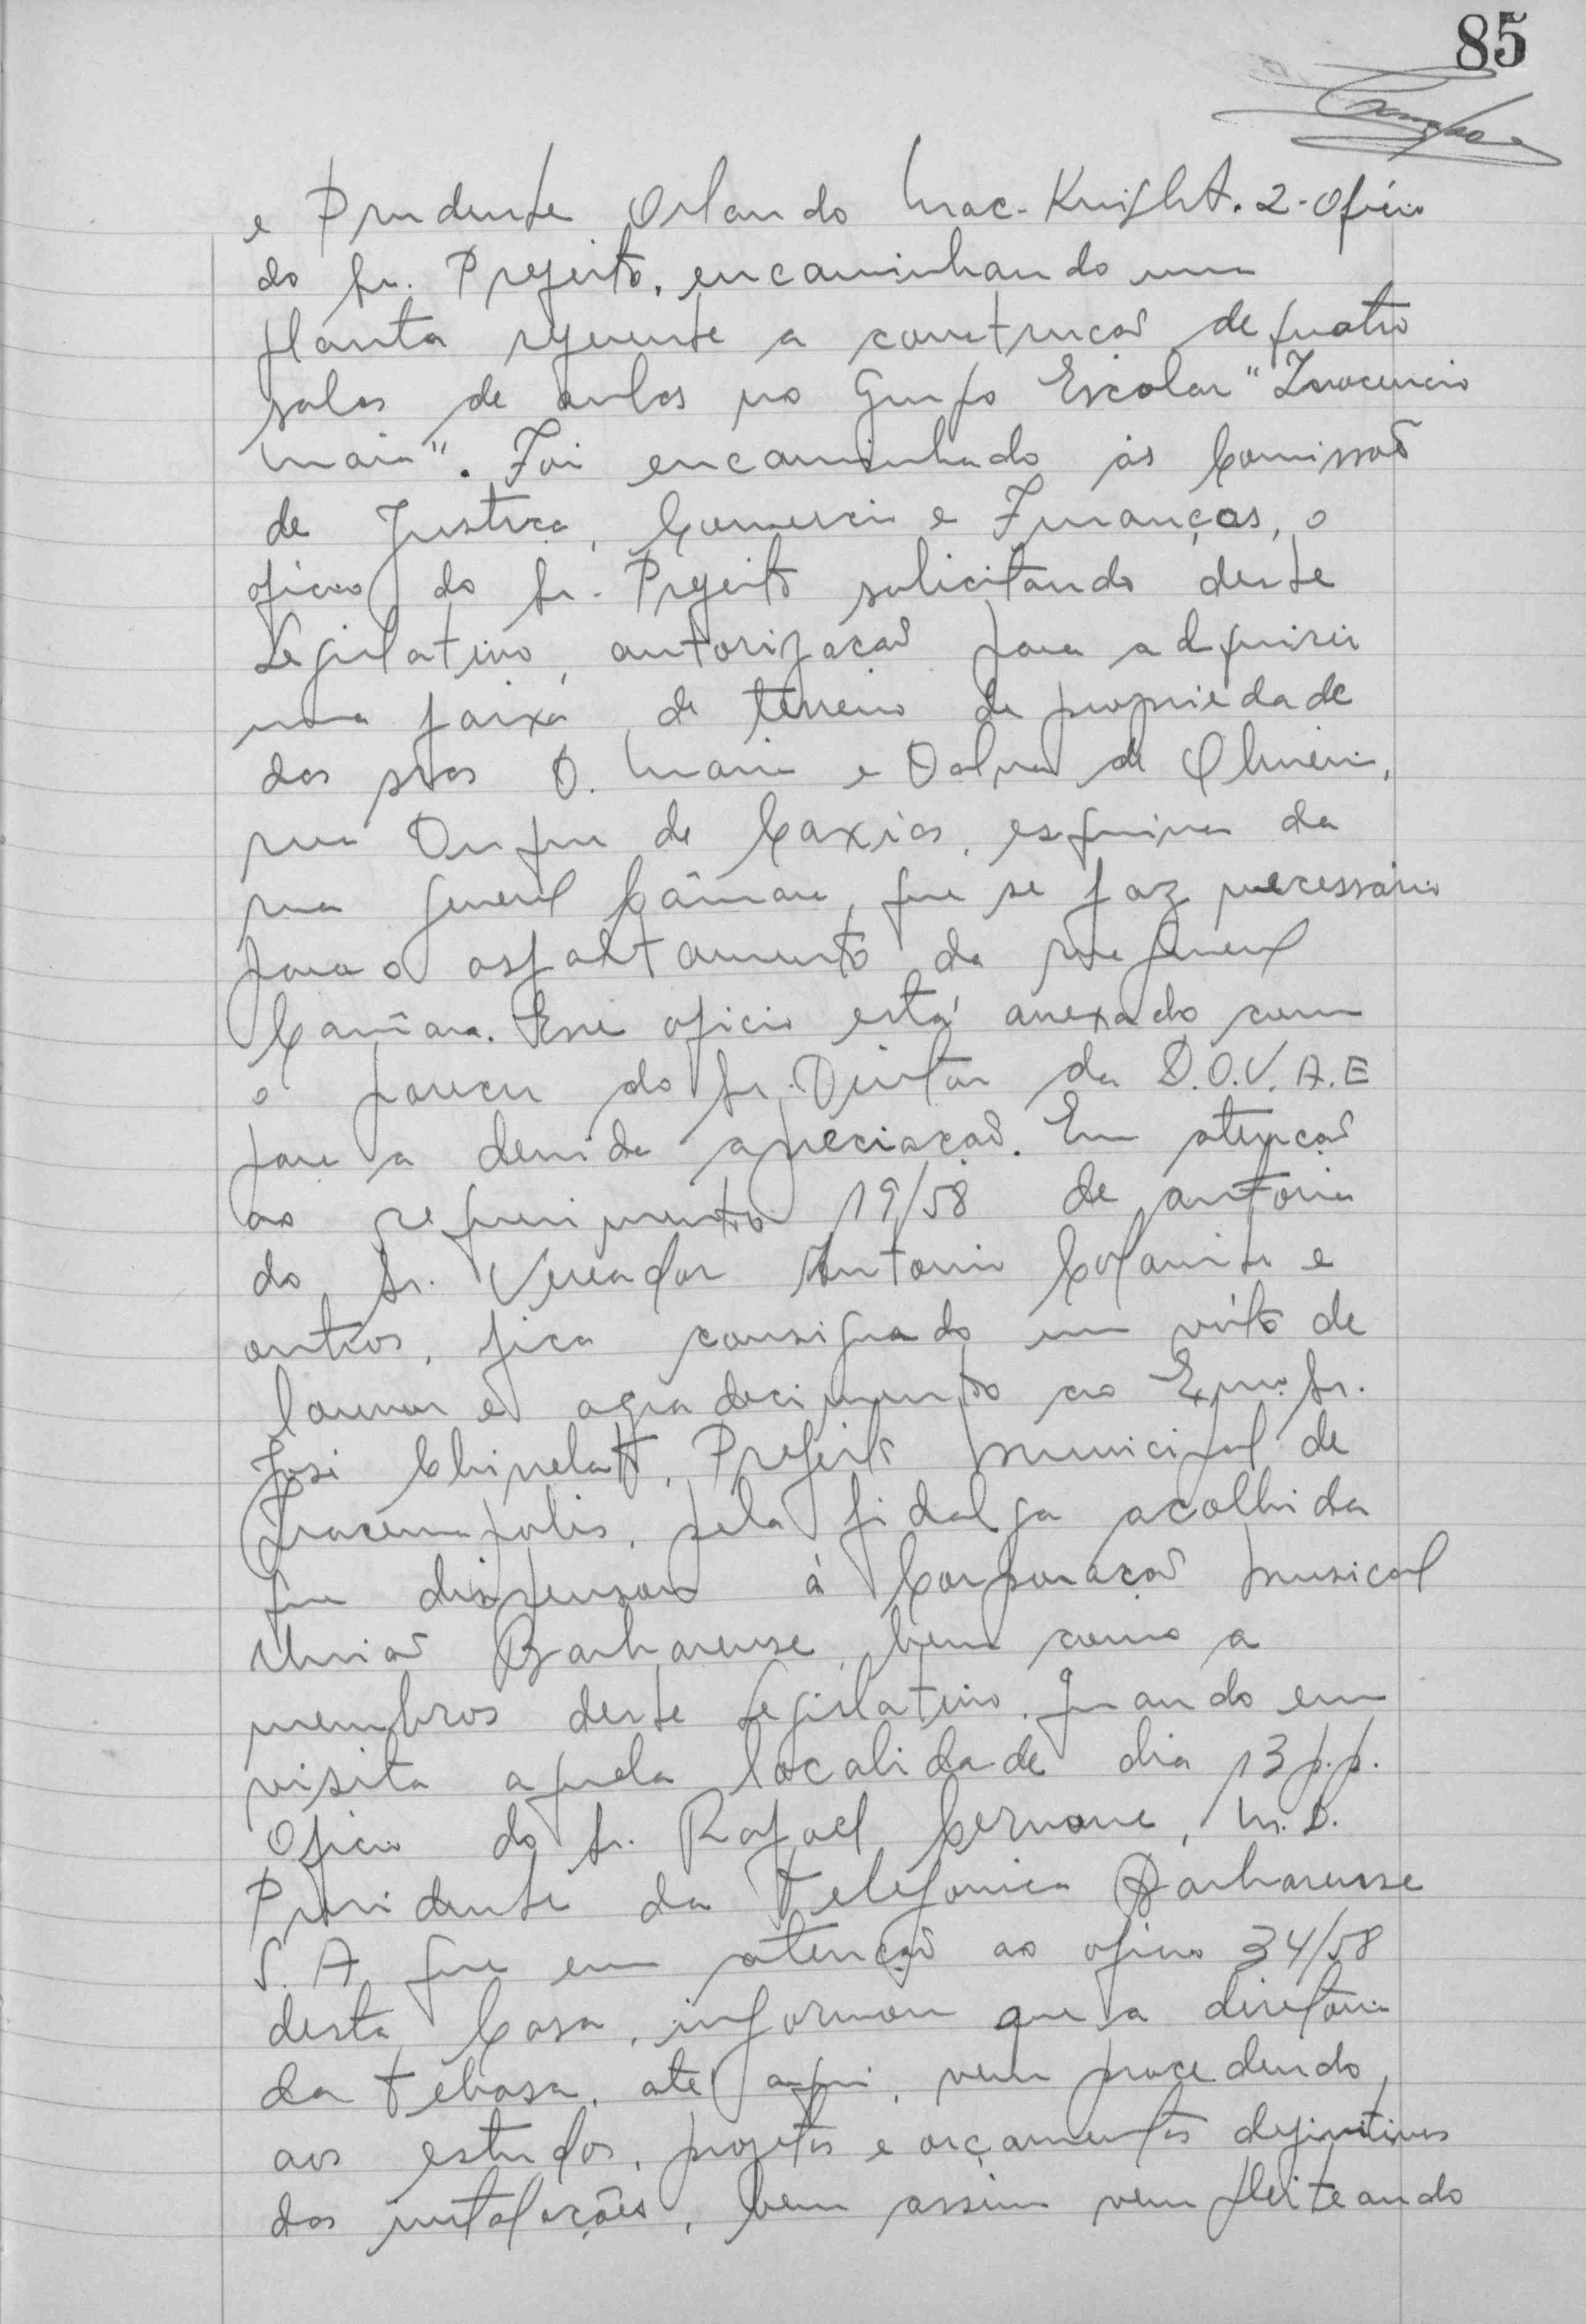 85
e Prudente Orlando Mac-Knight. 2-Oficio
do Sr. Prefeito, encaminhando uma
planta referente a construção de quatro
salas de aulas no Grupo Escolar "Inocencio
Maia". Foi encaminhado ás Comissoẽs
de Justiça, Comercio e Finanças, o
oficio do Sr. Prefeito solicitando deste
Legislativo, autorização para adquirir
uma faixa de terreno de propriedade
das sras D. Maria e Dalva de Oliveira,
rua Duque de Caxias, esquina da
rua General Câmara, que se faz necessário
para o asfaltamento da rua General
Camâra. Esse oficio está anexado com
o parecer do Sr. Diretor da D.O.V.A.E
para a devida apreciação. Em atenção
ao requerimento 19/58 de autoria
do Sr. Vereador Antonio Colamite e
outros, fica consignado um vóto de
louvor e agradecimento ao Exmo. Sr.
José Chinelatt, Prefeito Municipal de
Iracemapolis, pela fidalga acolhida
que dispensou á Corporação Musical
União Barbarense, bem como a
membros deste Legislativo, quando em
visita aquela localidade dia 13 p.p.
Oficio do Sr. Rafael Cervone, M.D.
Presidente da Telefonica Barbarense
S.A que em atenção ao oficio 34/58
desta Casa, informou que a diretoria
da Tebasa, até aqui, vem procedendo,
aos estudos, projetos e orçamentos definitivos
das instalações, bem assim vem pleiteando